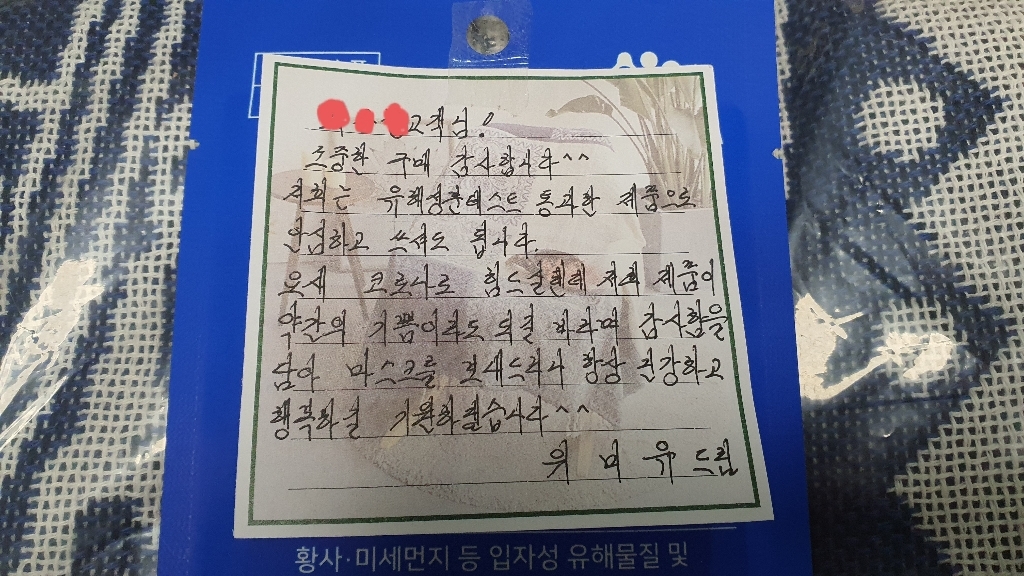 고객님!
소중한 구매 감사합니다^^
저희는 유해성분테스트 통과한 제품으로
안심하고 쓰셔도 됩니다.
요새 코로나로 힘드실텐데 저희 제품이
약간의 기쁨이라도 되길 바라며 감사함을
담아 마스크를 보내드리니 항상 건강하고
행복하길 기원하겠습니다^^
위 미 유 드림
황사·미세먼지 등 입자성 유해물질 및